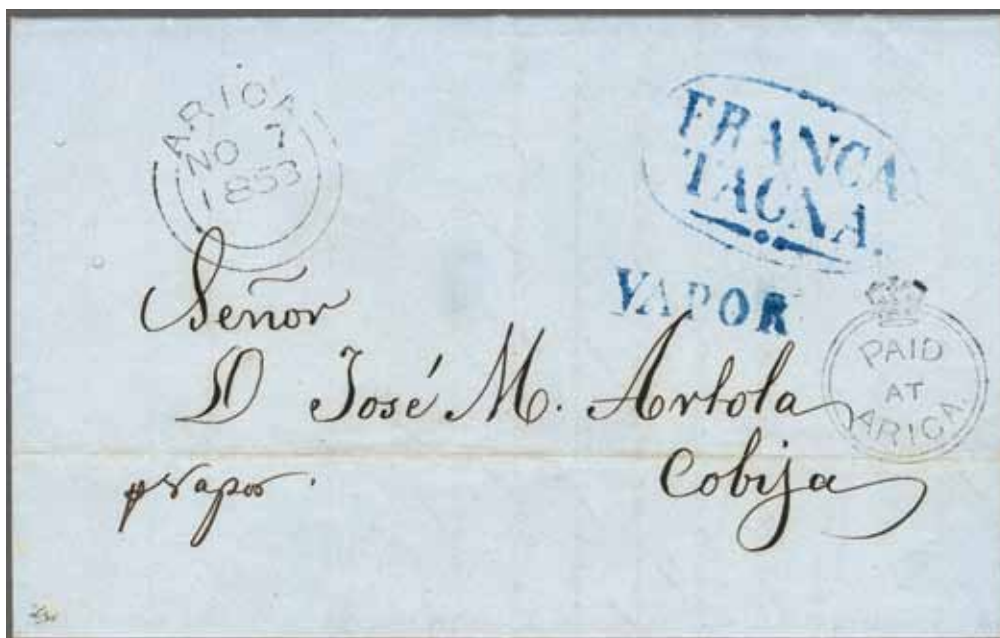 ARICA
NO 7
1853
FRANCA
TACNA.
VAPOR
PAID
AT
ARICA.
Señor
D José M. Artola
Cobija
p vapor.